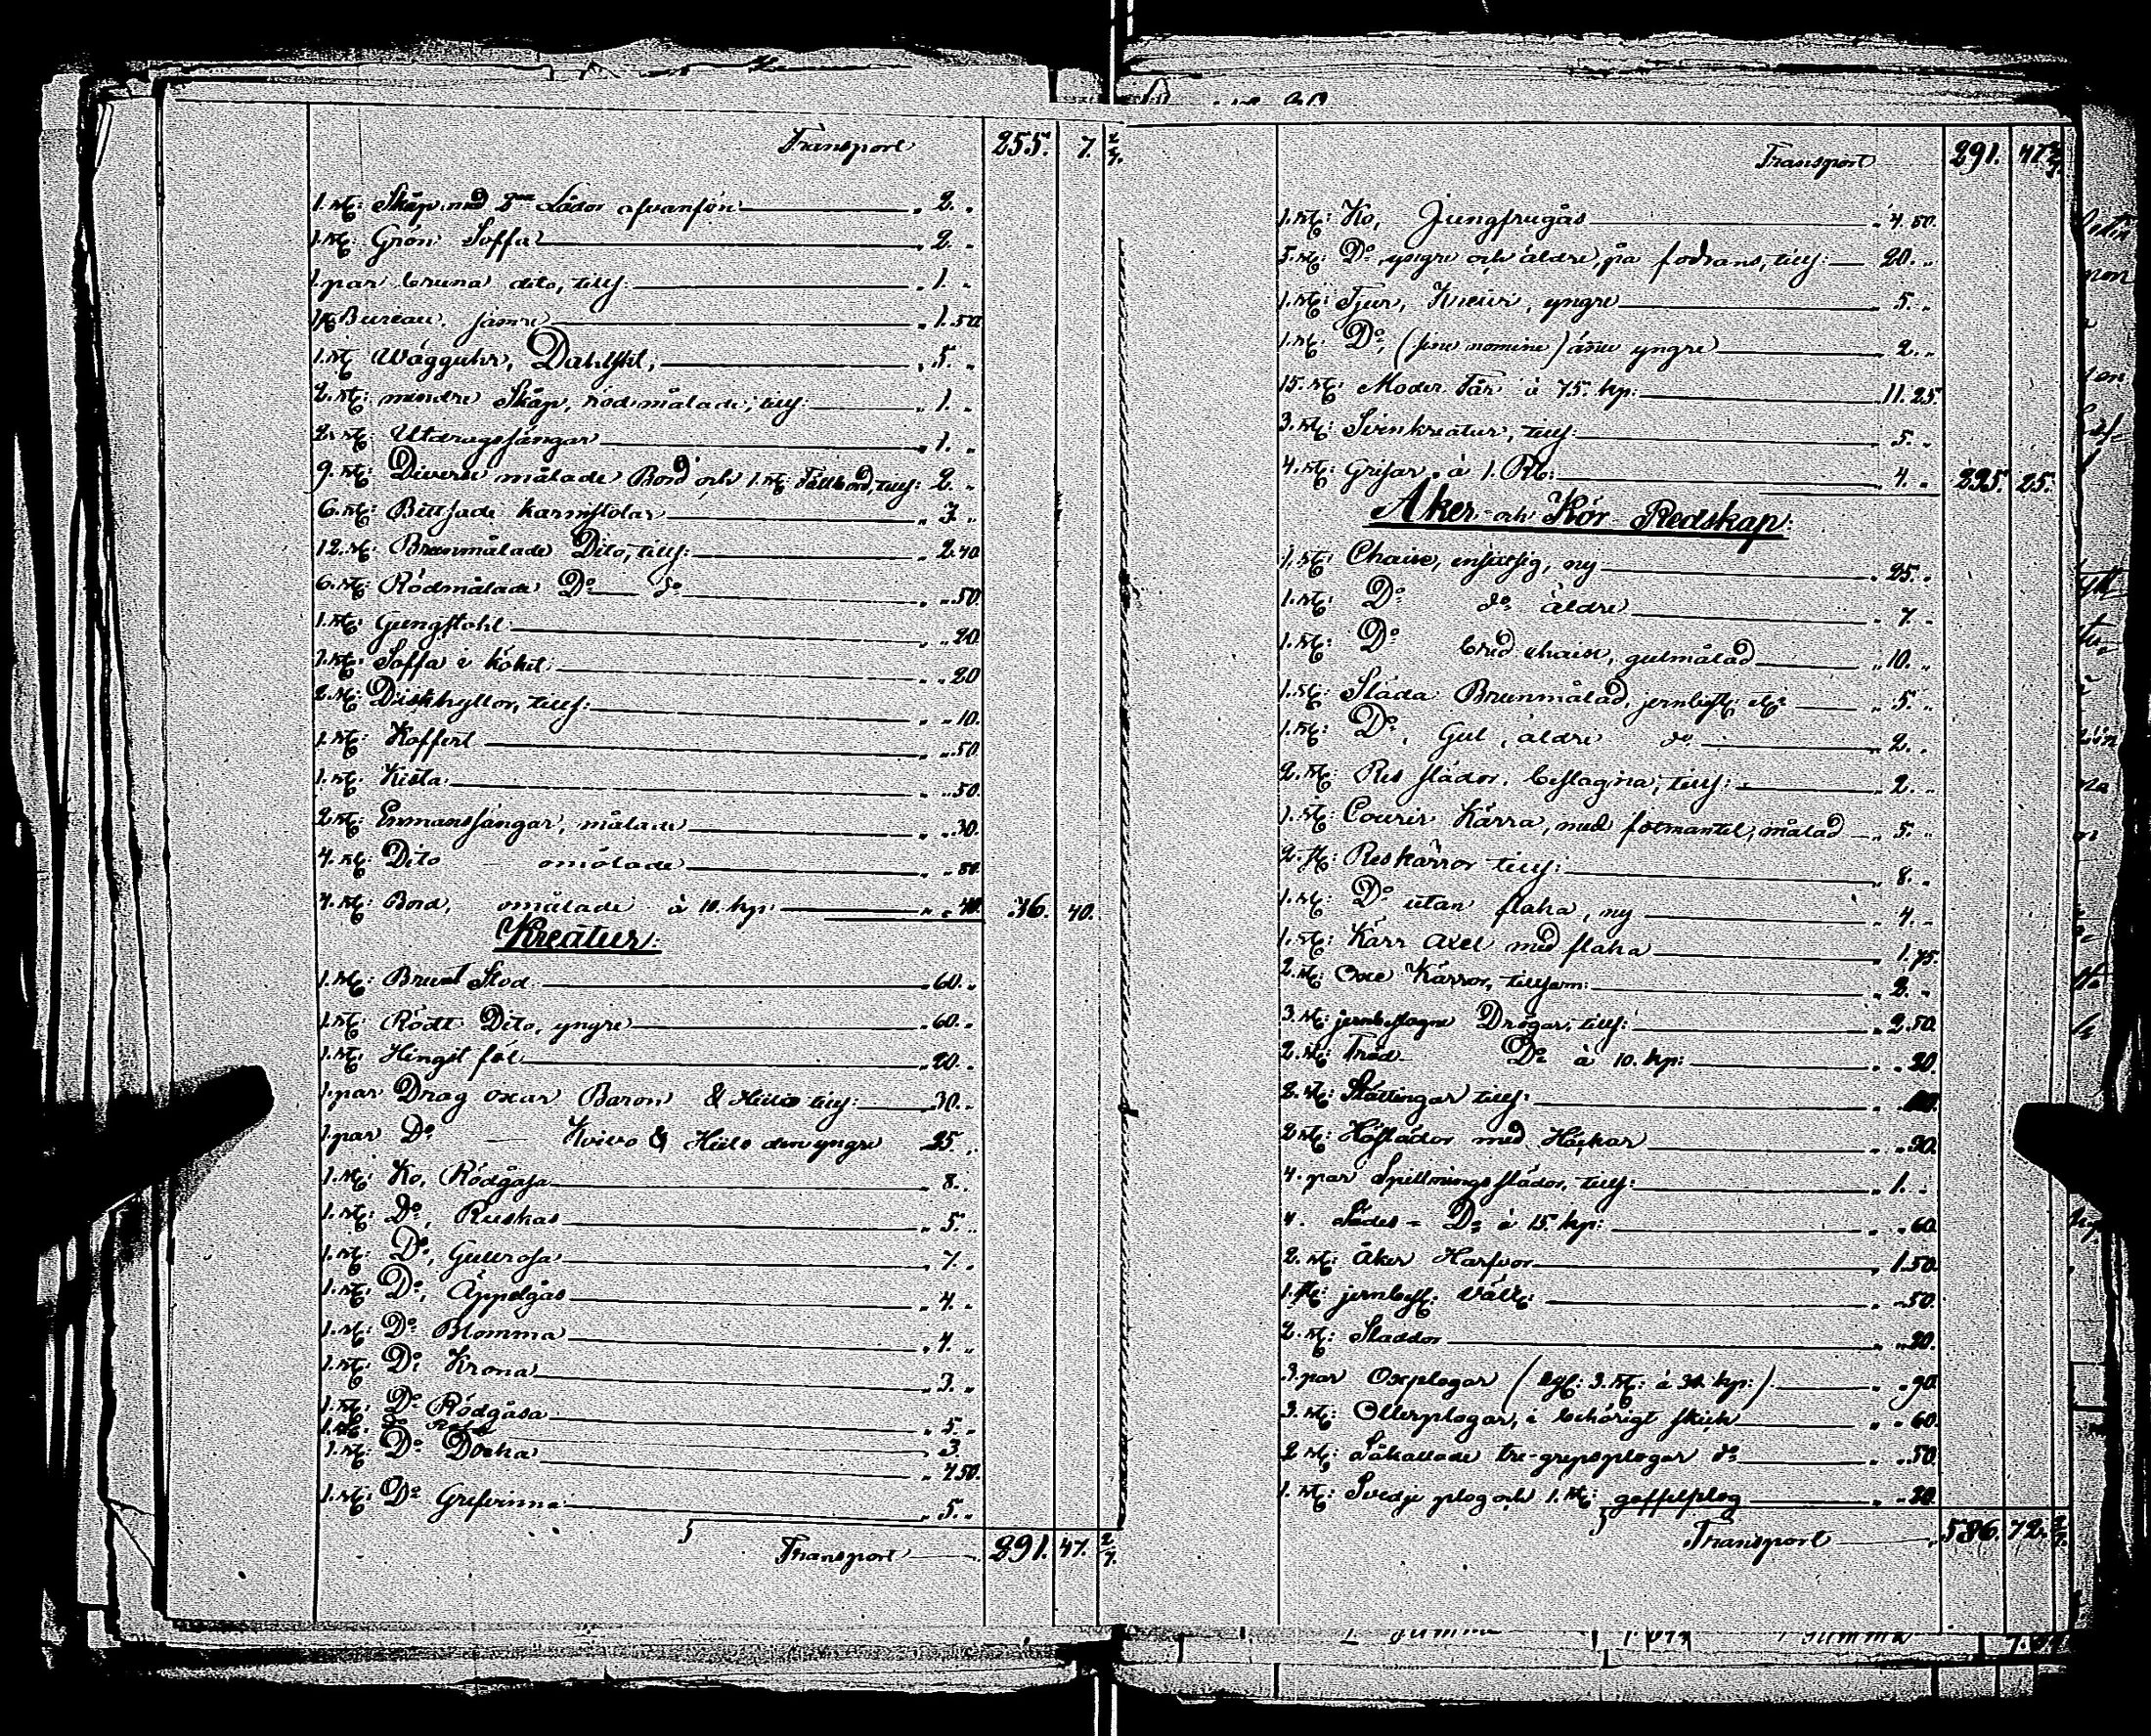 Transport 255. 7. 2/7.
1. st: Skåp med 2ne Lådor ofvanför „ 2. „
1. st: Grön Soffa „ 2. „
1. par bruna dito, tills: „ 1. „
1 st Bureau, sämre „ 1. 50.
1. st Wägguhr, „ 5. „
2. st: mindre Skåp, rödmålade, tills: „ 1. „
2. st: Utdragssängar „ 1. „
9. st: Diverse målade Bord och 1. st: Fällbord, tills: 2. „
6. st: Bettsade karmstolar „ 3. „
12. st: Brunmålade Dito, tills: „ 2. 40.
6. st: Rödmålade Do do „ „ 50.
1. st: Gungstohl „ „ 20.
1. st: Soffa i köket „ „ 20
2. st: Diskhyllor, tills: „ „ 10.
1. st: Koffert „ „ 50.
1. st: Kista „ „ 50.
2 st: Enmanssängar, målade „ „ 30.
4. st: Dito omålade „ „
4. st: Bord, omålade à 10. kp: „ „ 40. 40.
Kreatur:
1. st: Brunt Stod „ 60. „
1. st: Rödt Dito, yngre „ 60. „
1. st: Hingst föl „ 20. „
1. par Drag oxar Baron & tills: 30. „
1. par Do & den yngre 25. „
1. st: Ko, Rödgåsa „ 8. „
1. st: Do, Ruskas „ 5. „
1. st: Do, Gullrosa „ 7. „
1. st: Do, Äppelgås „ 4. „
1. st: Do Blomma „ 4. „
1. st: Do Krona „ 3. „
1. st: Do Rödgåsa „ 5. „
1. st: Do „ 3.
1. st: Do Docka „ 4. 50.
1. st: Do Grefvinna „ 5. „
Transport 291. 47. 2/7.
Transport 291. 47 2/7.
1. st: Ko, Jungfrugås „ 4. 50.
5. st: Do yngre och äldre, på fodrans, tills: 20. „
1. st: Tjur, yngre „ 5. „
1. st: Do, (sine nomine) ännu yngre „ 2. „
15. st: Moder Får à 75. kp: „ 11. 25.
3. st: Svinkreatur, tills: „ 5. „
4. st: Grisar à 1. Rb: „ 4. „ 295. 25.
Åker- och Kör Redskap:
1. st: Chaise, ensitsig, ny „ 25. „
1. st: Do do äldre „ 7. „
1. st: Do bred chaise, gulmålad „ 10. „
1. st: Släda Brunmålad, jernbesl: „ 5. „
1. st: Do, Gul, äldre do „ 2. „
2. st: Res slädor, beslagna, tills: „ 2. „
1. st: Courir Kärra, med fotmantel, målad „ 5. „
2. st: Reskärror tills: „ 8. „
1. st: Do utan flaka, ny „ 4. „
1. st: Kärr Axel med flaka „ 1. 75.
2. st: Oxe Kärror, tillsam: „ 2. „
3. st: jernbeslagne Drögar, tills: „ 2. 50.
2. st: Träd Do à 10. kp: „ „ 20.
2. st: Stättingar tills: „ „
2 st: Höslädor med Häckar „ „ 30.
4. par Spillningsslädor, tills: „ 1. „
4. Sädes - Do à 15. kp: „ „ 60.
2. st: Åker Harfvor „ 1. 50.
1. st: jernbesl: Vält: „ „ 50.
2. st: Sladdor „ „ 20.
3. par Oxplogar ( 3. st: à 30. kp:) „ „ 90.
3. st: Ollerplogar, i behörigt skick „ „ 60.
2 st: Såkallade tre-grepsplogar do „ „ 50.
1. st: Svedje plog och 1. st: gaffelplog „ „ 20.
Transport 586. 72. 2/7.